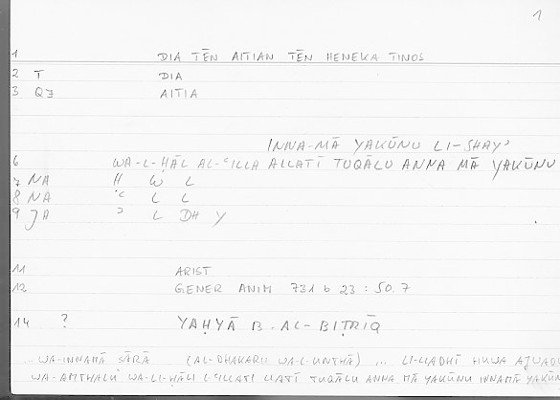 1
1 DIA TĒN AITIAN TĒN HENEKA TINOS
2 T DIA
3 AITIA
INNA-MĀ YAKŪNU LI-SHAYʾ
6 WA-L-ḤĀL AL-ʿILLA ALLATĪ TUQĀLU ANNA MĀ YAKŪNU
7 NA Ḥ W L
8 NA ʿ L L
9 JA ʾ L DH Y
11 ARIST
12 GENER ANIM 731 b 23 : 50.7
14 ? YAḤYĀ B. AL-BIṬRĪQ
... WA-INNAMĀ ṢĀRĀ (AL-DHAKARU WA-L-UNTHĀ) ... LI-LLADHĪ HUWA
WA-AMTHALU WA-LI-ḤĀLI L-ʿILLATI LLATĪ TUQĀLU ANNA MĀ YAKŪNU INNAMĀ YAKŪN